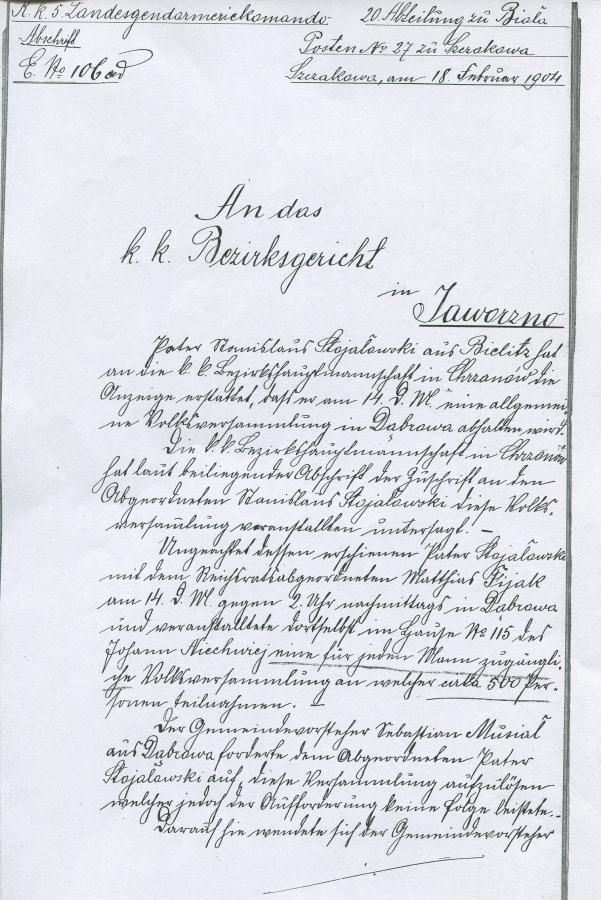 K. k. 5. Landesgendarmeriekomando. 20. Abteilung zu Biała
Abschrift Posten No 27 zu Szczakowa
E. No 106 ad Szczakowa, am 18. Februar 1904
An das
k. k. Bezirksgericht
in Jaworzno
Pater Stanislaus Stojalowski aus Bielitz hat
an die k. k. Bezirkshauptmannschaft in Chrzanów die
Anzeige erstattet, dass er am 14. d. M. eine allgemei
ne Volksversammlung in Dabrawa abhalten wird.
Die k. k. Bezirkshauptmannschaft in Chrzanów
hat laut beiliegender Abschrift der Zuschrift an den
Abgeordneten Stanislaus Stojalowski diese Volks-
versamlung veranstallten untersagt. –
Ungeachtet dessen erschienen Pater Stojalowski
mit dem Reichsratsabgeordneten Matthias Fijak
am 14. d. M. gegen 2. Uhr nachmittags in Dabrawa
und veranstalltete dortselbst im Hause No 115 des
Johann eine für jeden Mann zugängli-
che Volksversammlung an welcher cirka 500 Per-
sonen teilnahmen. –
Der Gemeindevorsteher Sebastian Musiał
aus Dabrawa forderte dem Abgeordneten Pater
Stojalowski auf, diese Versammlung aufzulösen
welcher jedoch der Aufforderung keine folge leistete.–
Darauf hie wendete sich der Gemeindevorsteher